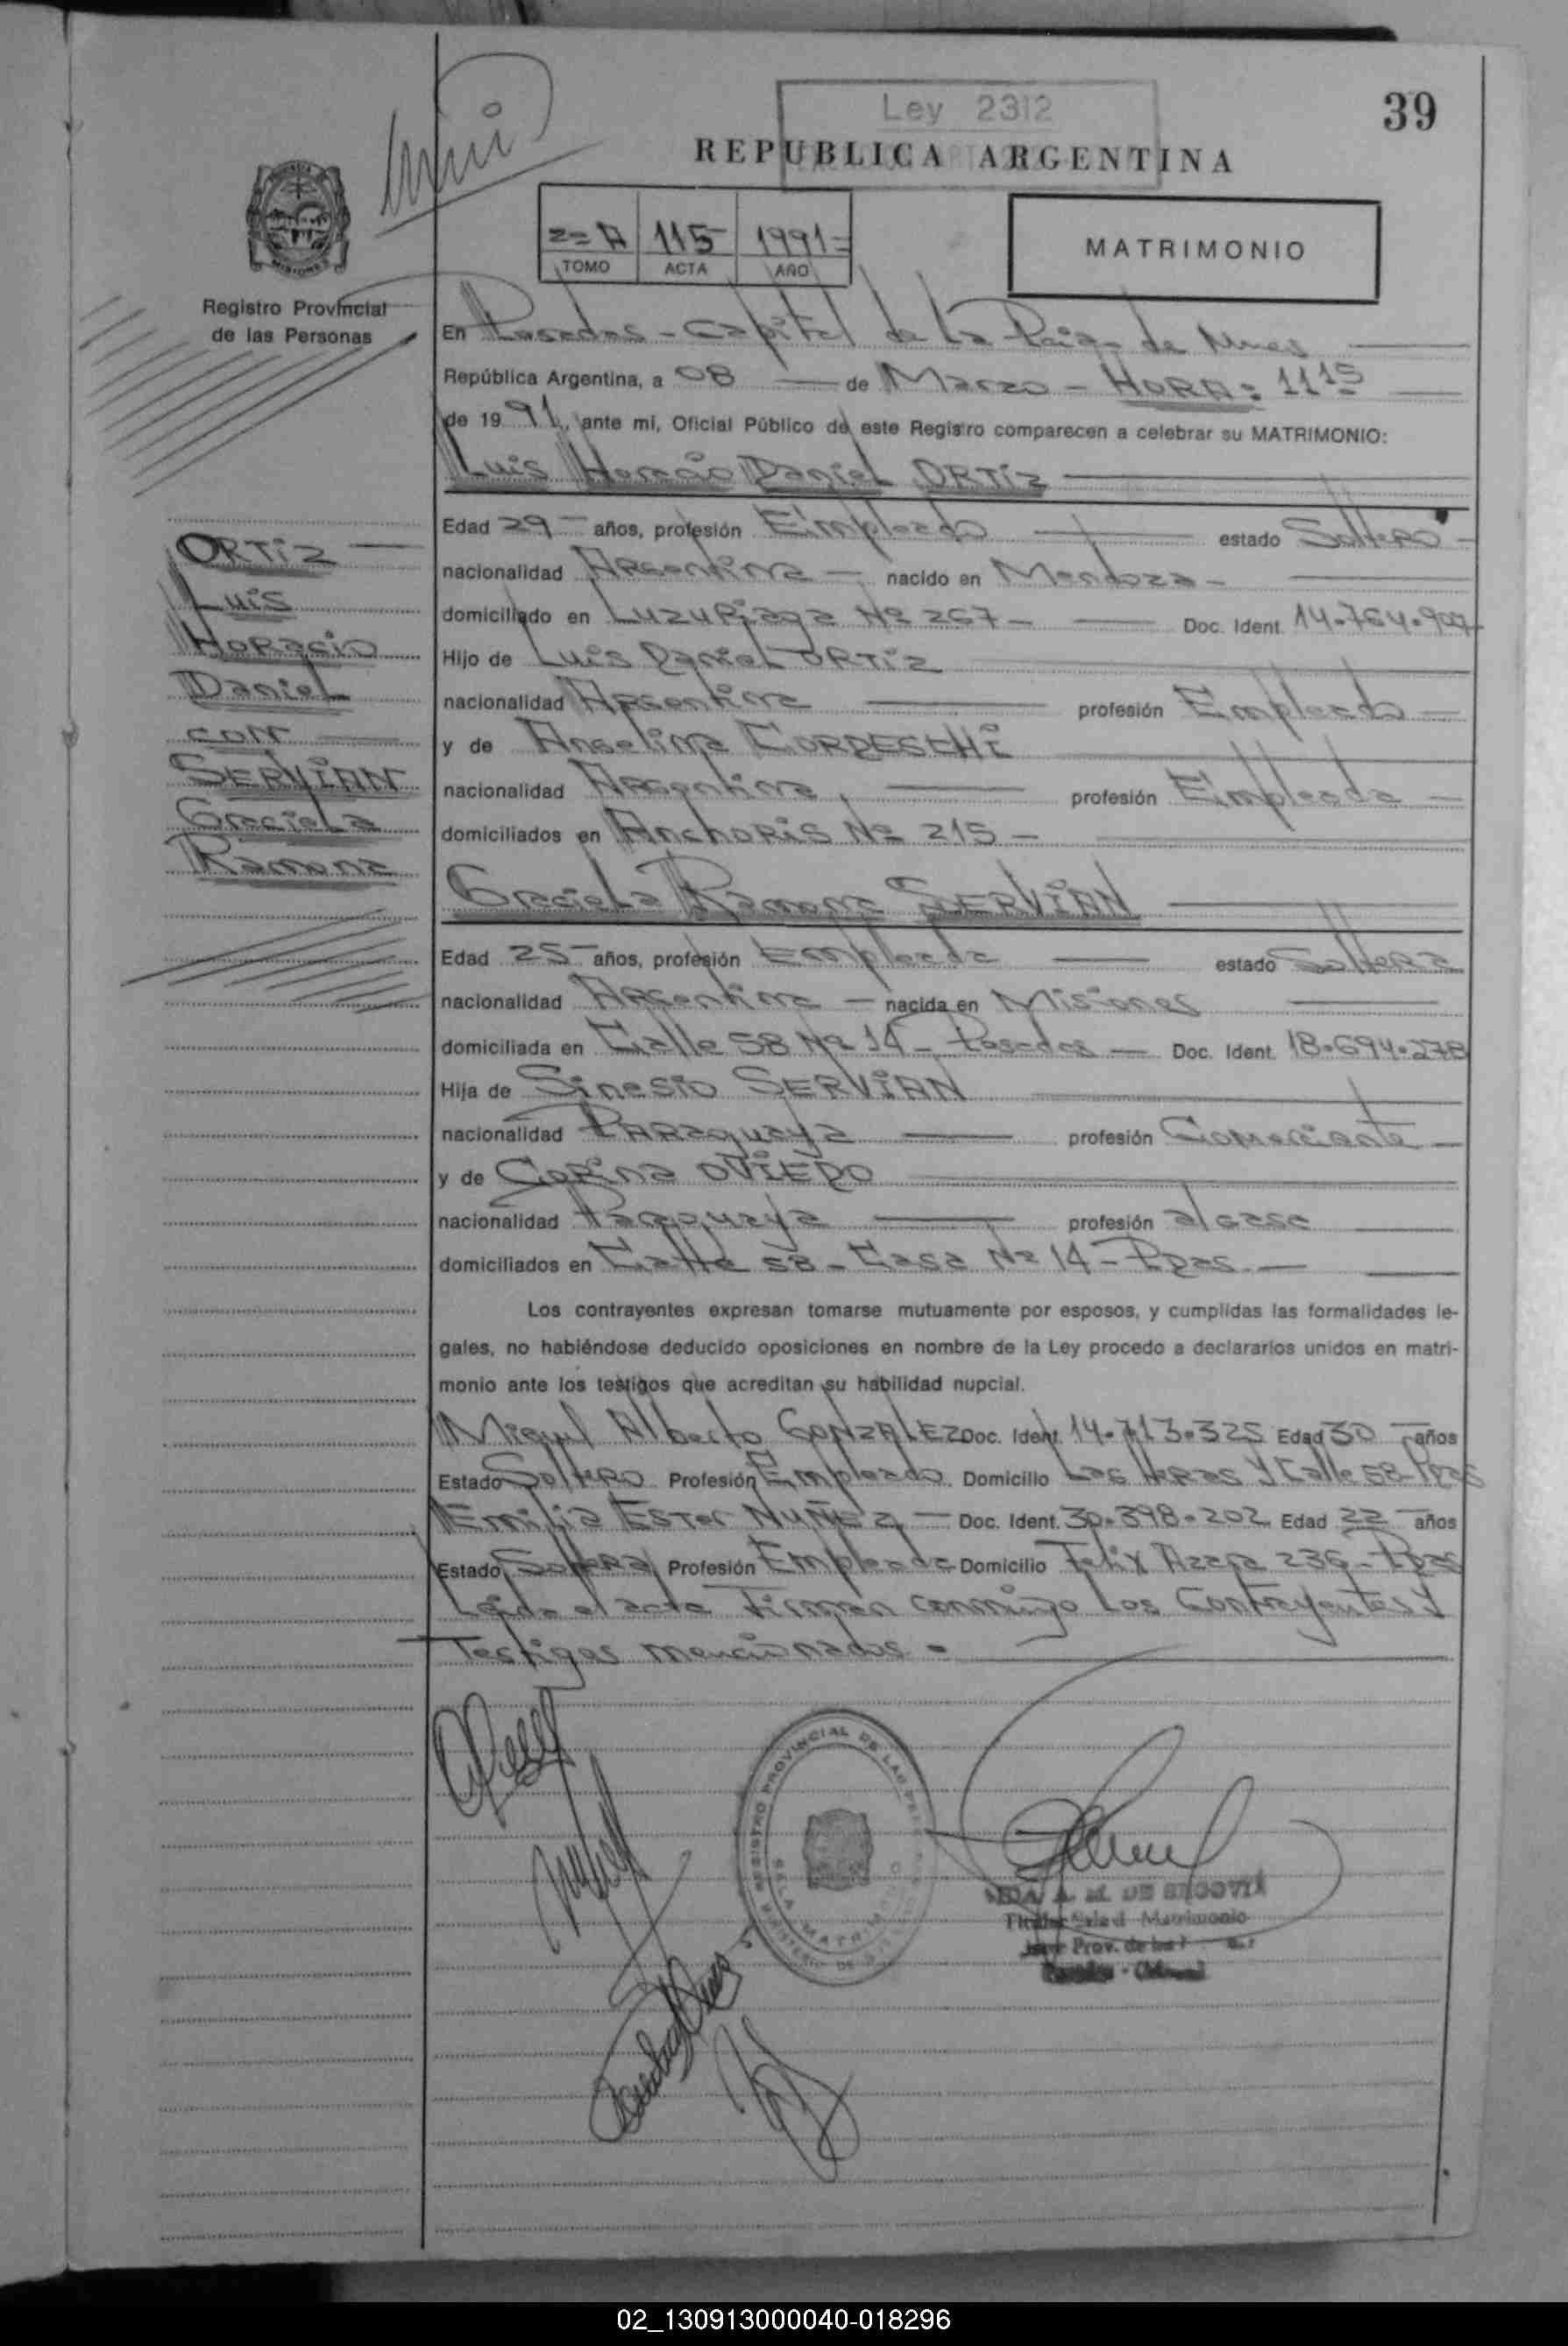 39
Ley 2312
REPUBLICA ARGENTINA
2=A 115 1991=
TOMO ACTA AÑO
MATRIMONIO
MISIONES
Registro Provincial
de las Personas
En Posadas - Capital de La Pcia. de Mnes
República Argentina, a 08 de Marzo - HORA: 11 15
de 19 91, ante mí, Oficial Público de este Registro comparecen a celebrar su MATRIMONIO:
Luis Horacio Daniel ORTIZ
Edad 29 años, profesión Empleado estado Soltero
nacionalidad Argentina nacido en Mendoza -
domiciliado en Luzuriaga Nº 267 - Doc. Ident. 14.764.907
Hijo de Luis Daniel ORTIZ
nacionalidad Argentina profesión Empleado
y de Angelina CORDESCHI
nacionalidad Argentina profesión Empleada
domiciliados en Anchoris Nº 215 -
ORTIZ
Luis
Horacio
Daniel
con
SERVIAN
Graciela
Ramona
Graciela Ramona SERVIAN
Edad 25 años, profesión Empleada estado Soltera
nacionalidad Argentina nacida en Misiones
domiciliada en Calle 58 Nº 14 - Posadas Doc. Ident. 18.694.278
Hija de Sinesio SERVIAN
nacionalidad Paraguaya profesión Comerciante
y de Corina OVIEDO
nacionalidad Paraguaya profesión a/casa
domiciliados en Calle 58 - Casa Nº 14 - Pdas.
Los contrayentes expresan tomarse mutuamente por esposos, y cumplidas las formalidades le-
gales, no habiéndose deducido oposiciones en nombre de la Ley procedo a declararlos unidos en matri-
monio ante los testigos que acreditan su habilidad nupcial.
Miguel Alberto GONZALEZ Doc. Ident. 14.713.325 Edad 30 años
Estado Soltero Profesión Empleado Domicilio Las Heras y Calle 58 - Pdas
Emilia Ester NUÑEZ Doc. Ident. 30.398.202 Edad 22 años
Estado Soltera Profesión Empleada Domicilio Felix Azara 236 - Pdas
Leída el acta Firman conmigo Los Contrayentes y
Testigos mencionados.
REGISTRO PROVINCIAL DE LAS
SALA MATRIMONIO
MINISTERIO DE
A. M. DE SEGOVIA
Matrimonio
Prov. de las
02_130913000040-018296